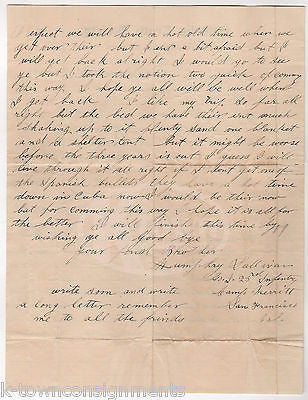 I expect we will have a hot old time when we
get over their but I ant a bit afraid but I
will get back alright I would go to see
ye but I took the notion two quick of coming
this way. I hope ye all well be well when
I get back I like my trip so far all
right but the bed we have their isnt much
shaking up to it plenty sand one blanket
and a shelter tent but it might be worse
before the three years is out I guess I will
live through it all right if I dont get one of
the Spanish bullets they have a hot time
down in Cuba now I would be their now
but for comming this way I hope it is all for
the better I will finish this time by
wishing ye all good bye
Your Brother
Humphry Sullivan
Co. 23rd Infantry
Camp Merritt
San Francisco
Cal.
write soon and write
a long letter remember
me to all the friends
k-townconsignments